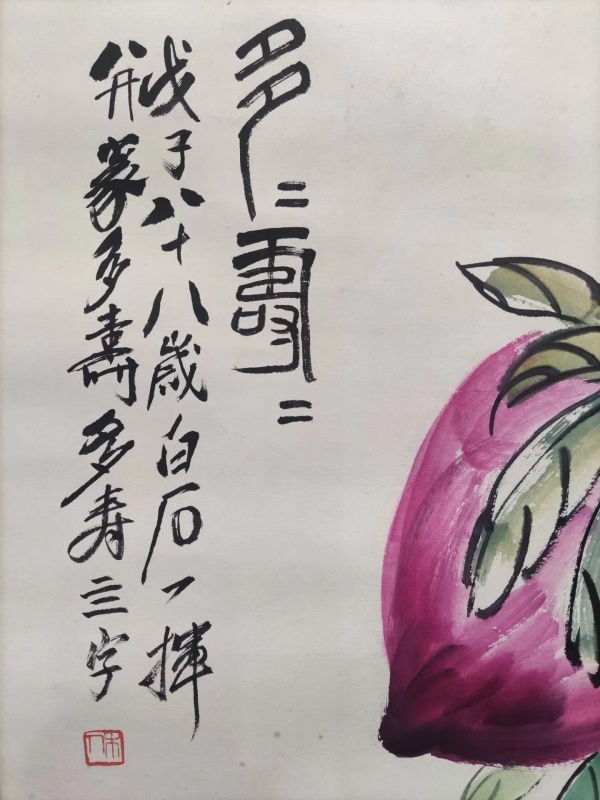 多二壽二
戊子八十八歲白石一揮
并篆多壽多寿三字
木人